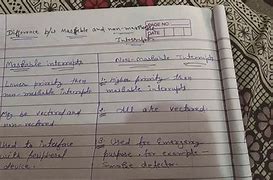 Difference b/w Maskable and non-maskable
Interrupts
PAGE NO
DATE
Maskable interrupts
Non-Maskable Interrupts
Lower priority then
non-maskable interrupts
1. Higher priority then
maskable interrupts
May be vectored and
non-vectored
2. All are vectored.
Used to interface
with peripheral
device.
3. Used for Emergency
purpose, for example -
smoke detector.